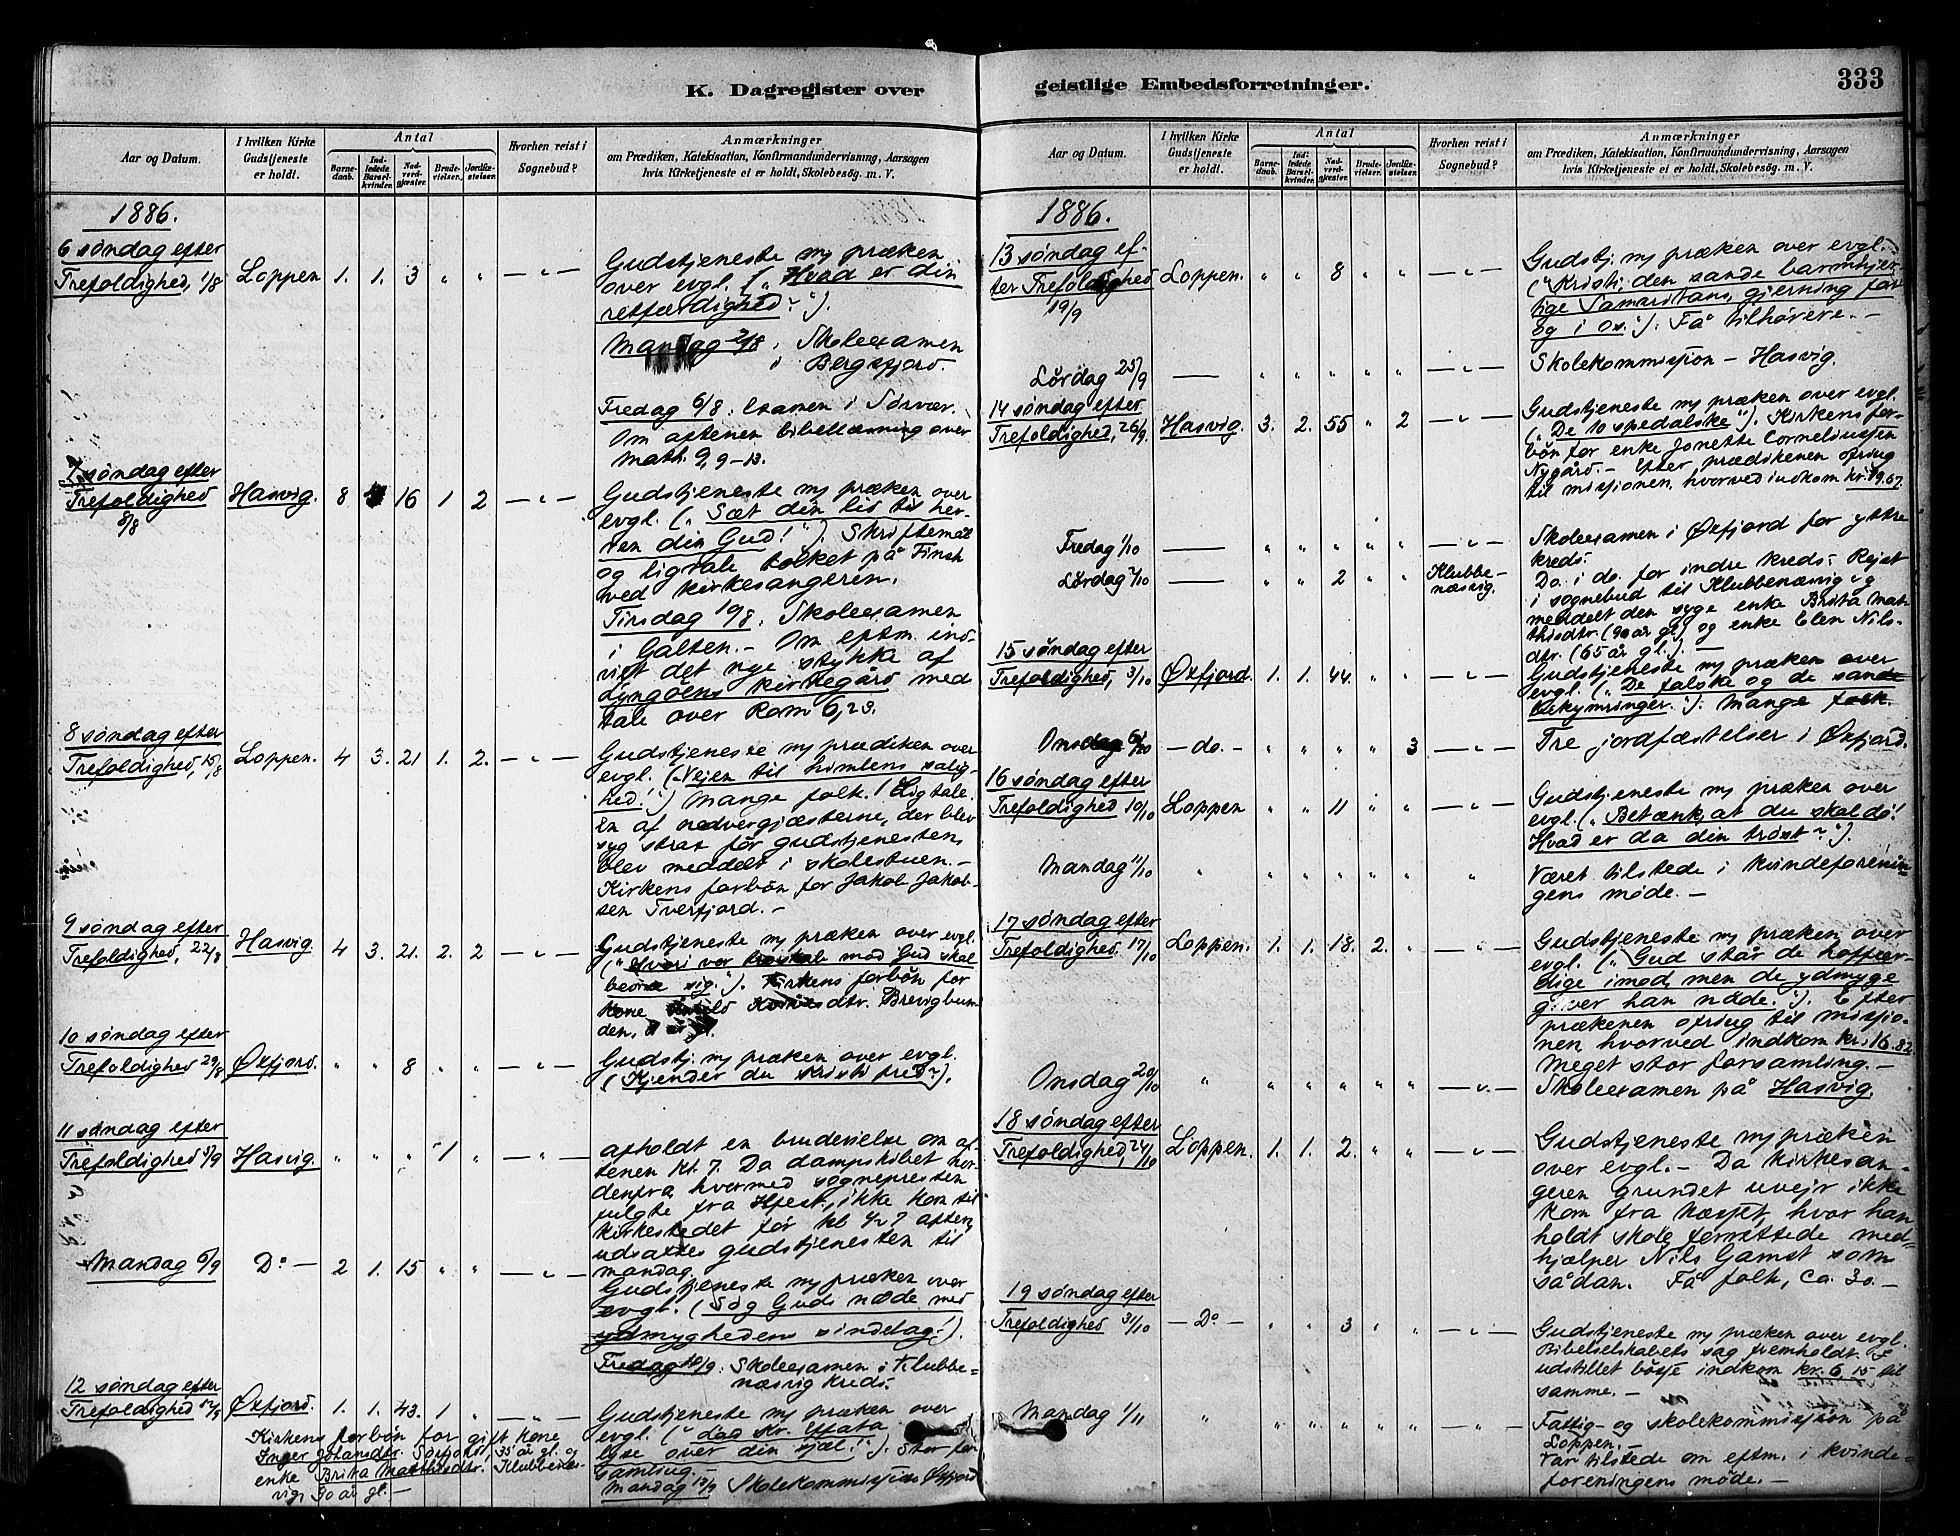 K. Dagregister over
Aar og Datum. | I hvilken Kirke Gudstjeneste er holdt. | Antal | Barnedaab. | Indledede Barselkvinder. | Nadverdgjæster. | Brudevielser. | Jordfæstelser. | Hvorhen reist i Sognebud? | Anmærkninger om Prædiken, Katekisation, Konfirmandundervisning, Aarsagen hvis Kirketjeneste ei er holdt, Skolebesøg. m. V.
1886.
6 søndag efter
Trefoldighed, 1/8 | Loppen | 1. | 1. | 3 | " | " | — " —
Gudstjeneste m præken
over evgl. („Hvad er din
retfærdighed?“).
Mandag 2/8, Skoleexamen
i Bergsfjord.
Fredag 6/8: Examen i Sørvær.
Om aftenen bibellæsning over
Math. 9, 9-13.
7 søndag efter
Trefoldighed 8/8 | Hasvig. | 8 | 16 | 1 | 2 | — " —
Gudstjeneste m præken over
evgl. („Sæt din lid til her-
ren din Gud!“). Skriftemål
og ligtale tolket på Finsk
ved kirkesangeren.
Tirsdag 10/8. Skoleexamen
i Galten. — Om eftm. ind-
viet det nye stykke af
Lyngøens kirkegård med
tale over Rom 6,23.
8 søndag efter
Trefoldighed, 15/8 | Loppen. | 4 | 3. | 21 | 1. | 2. | — " —
Gudstjeneste m prædiken over
evgl. („Vejen til himlens salig-
hed!“) Mange folk. 1 Ligtale.
En af nadvergjæsterne, der blev
syg strax før gudstjenesten
blev meddelt i skolestuen. —
Kirkens forbøn for Jakob Jakob-
sen Tverfjord. —
9 søndag efter
Trefoldighed, 22/8 | Hasvig. | 4 | 3. | 21. | 2. | 2 | — " —
Gudstjeneste m præken over evgl.
mod Gud skal
bevise sig.“). Kirkens forbøn for
kone dtr. Brevigbun-
den,
10 søndag efter
Trefoldighed 29/8 | Øxfjord. | " | " | 8 | " | " | — " —
Gudstj. m præken over evgl.
(Kjender du Kristi fred?).
11 søndag efter
Trefoldighed 5/9 | Hasvig. | " | " | " | 1 | " | — " —
afholdt en brudevielse om af-
tenen kl. 7. Da dampskibet nor-
denfra hvormed sognepresten
fulgte fra Hfest, ikke kom til
kirkestedet før kl 1/2 7 aften,
udsattes gudstjenesten til
mandag.
Mandag 6/9 | Do — | 2 | 1. | 15 | " | " | — " —
Gudstjeneste m præken over
evgl. (Søg Guds nåde med
ydmyghedens sindelag!).
Fredag 10/9: Skoleexamen i Klubbe-
næsvig kreds.
12 søndag efter
Trefoldighed 12/9 | Øxfjord. | 1. | 1. | 43. | 1 | " | — " —
Gudstjeneste m præken over
evgl. („Lad Kr. Effata
lyse over din sjæl!“). Stor for-
samling.
Mandag 13/9 Skolekommission Øxfjord
Kirkens forbøn for gift kone
Inger Johansdtr. Sørfjord, 35 år gl. og
enke Brita Matthisdtr. Klubbenæs-
vig, 90 år gl. —
geistlige Embedsforretninger.
333
Aar og Datum. | I hvilken Kirke Gudstjeneste er holdt. | Antal | Barnedaab. | Indledede Barselkvinder. | Nadverdgjæster. | Brudevielser. | Jordfæstelser. | Hvorhen reist i Sognebud? | Anmærkninger om Prædiken, Katekisation, Konfirmandundervisning, Aarsagen hvis Kirketjeneste ei er holdt, Skolebesøg. m. V.
1886.
13 søndag ef-
ter Trefoldighed 19/9 | Loppen. | " | " | 8 | " | " | — " —
Gudstj. m præken over evgl.
(„Kristi, den sande barmhjer-
tige Samaritans, gjerning for
og i os.“). Få tilhørere. —
Lørdag 25/9 | — | " | " | " | " | " | — " —
Skolekommission — Hasvig.
14 søndag efter
Trefoldighed, 26/9 | Hasvig. | 3. | 2. | 55 | " | 2 | — " —
Gudstjeneste m præken over evgl.
(„De 10 spedalske“). Kirkens for-
bøn for enke Jonette Corneliussen
Nygård. — Efter prædikenen ofring
til missionen, hvorved indkom kr. 19.67.
Fredag 1/10 | — | " | " | " | " | " | — " —
Skoleexamen i Øxfjord for yttre
kreds.
Lørdag 2/10 | — | " | " | 2 | " | " | Klubbe-
næsvig.
Do. i do. for indre kreds. Rejst
i sognebud til Klubbenæsvig og
meddelt den syge enke Brita Mat-
thisdtr. (90 år gl.) og enke Elen Nils-
dtr. (65 år gl.). —
15 søndag efter
Trefoldighed, 3/10 | Øxfjord. | 1. | 1. | 44. | " | " | — " —
Gudstjeneste m præken over
evgl. („De falske og de sande
bekymringer.“). Mange folk.
Onsdag 6/10 | — do. — | " | " | " | " | 3 | — " —
Tre jordfæstelser i Øxfjord.
16 søndag efter
Trefoldighed 10/10 | Loppen | " | " | 11 | " | " | — " —
Gudstjeneste m præken over
evgl. („Betænk, at du skal dø!
Hvad er da din trøst?“).
Mandag 11/10 | " | " | " | " | " | " | "
Været tilstede i kvindeforenin-
gens møde. —
17 søndag efter
Trefoldighed. 17/10 | Loppen. | 1. | 1. | 18. | 2. | " | — " —
Gudstjeneste m præken over
evgl. („Gud står de hoffær-
dige imod, men de ydmyge
giver han nåde.“). Efter
prækenen ofring til missio-
nen hvorved indkom kr. 16.82
Meget stor forsamling. —
Onsdag 20/10 | " | " | " | " | " | " | — " —
Skoleexamen på Hasvig.
18 søndag efter
Trefoldighed, 24/10 | Loppen. | 1. | 1. | 2. | " | " | — " —
Gudstjeneste m præken
over evgl. — Da kirkesan-
geren grundet uvejr ikke
kom fra Næsset, hvor han
holdt skole forrettede med-
hjælper Nils Gamst som
sådan. Få folk, ca. 30. —
19 søndag efter
Trefoldighed 31/10 | — Do — | " | " | 3 | " | " | — " —
Gudstjeneste m præken over evgl.
Bibelselskabets sag fremholdt. I
udstillet bøsse indkom kr. 6.15 til
samme. —
Mandag 1/11 | " | " | " | " | " | " | — " —
Fattig- og skolekommission på
Loppen. —
Var tilstede om eftm. i kvinde-
foreningens møde. —